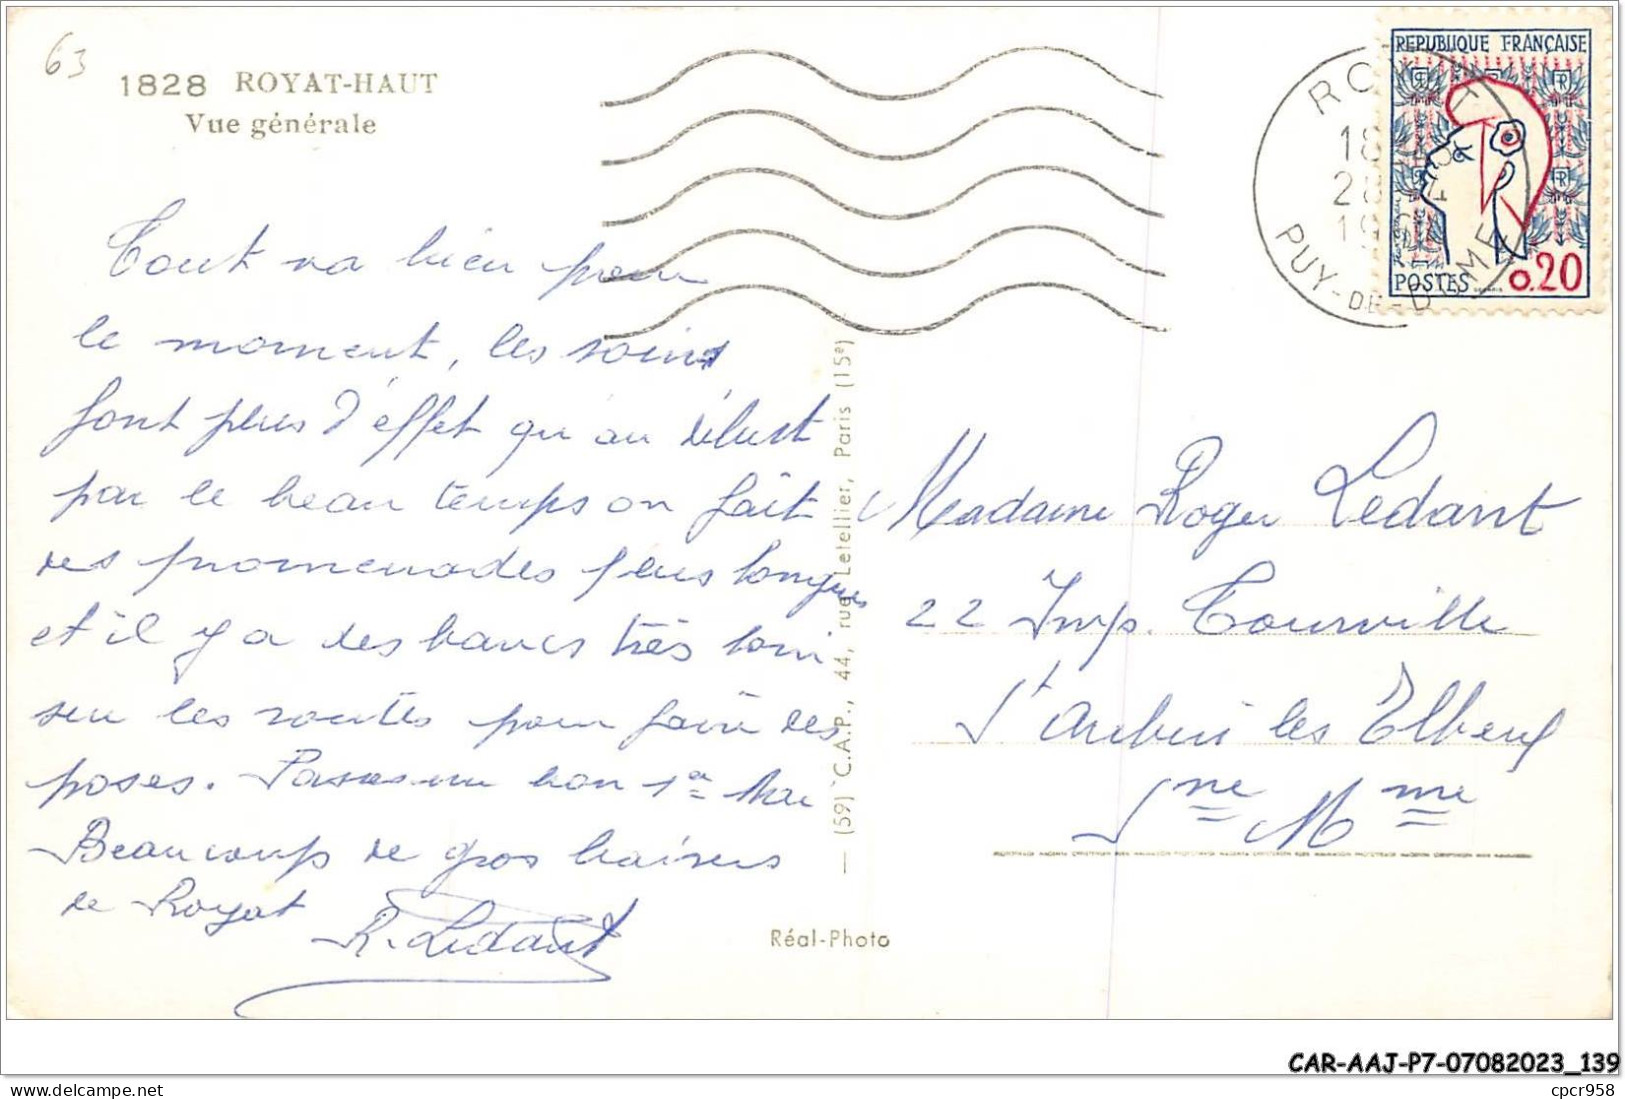 63
1828 ROYAT-HAUT
Vue générale
Tout va bien pour
le moment, les soins
font plus d'effet qu'au début
par le beau temps on fait
des promenades plus longues
et il y a des bancs très loin
sur les routes pour faire des
poses. Passez un bon 1er Mai
Beaucoup de gros baisers
de Royat
R. Ledant
(59) C.A.P., 44, rue Letellier, Paris (15e)
Réal-Photo
PUY-DE-DOME
REPUBLIQUE FRANÇAISE
POSTES 0.20
Madame Roger Ledant
22 Imp. Tourville
St Aubin les Elbeuf
Sne Mme
CAR-AAJ-P7-07082023_139
cpcr958